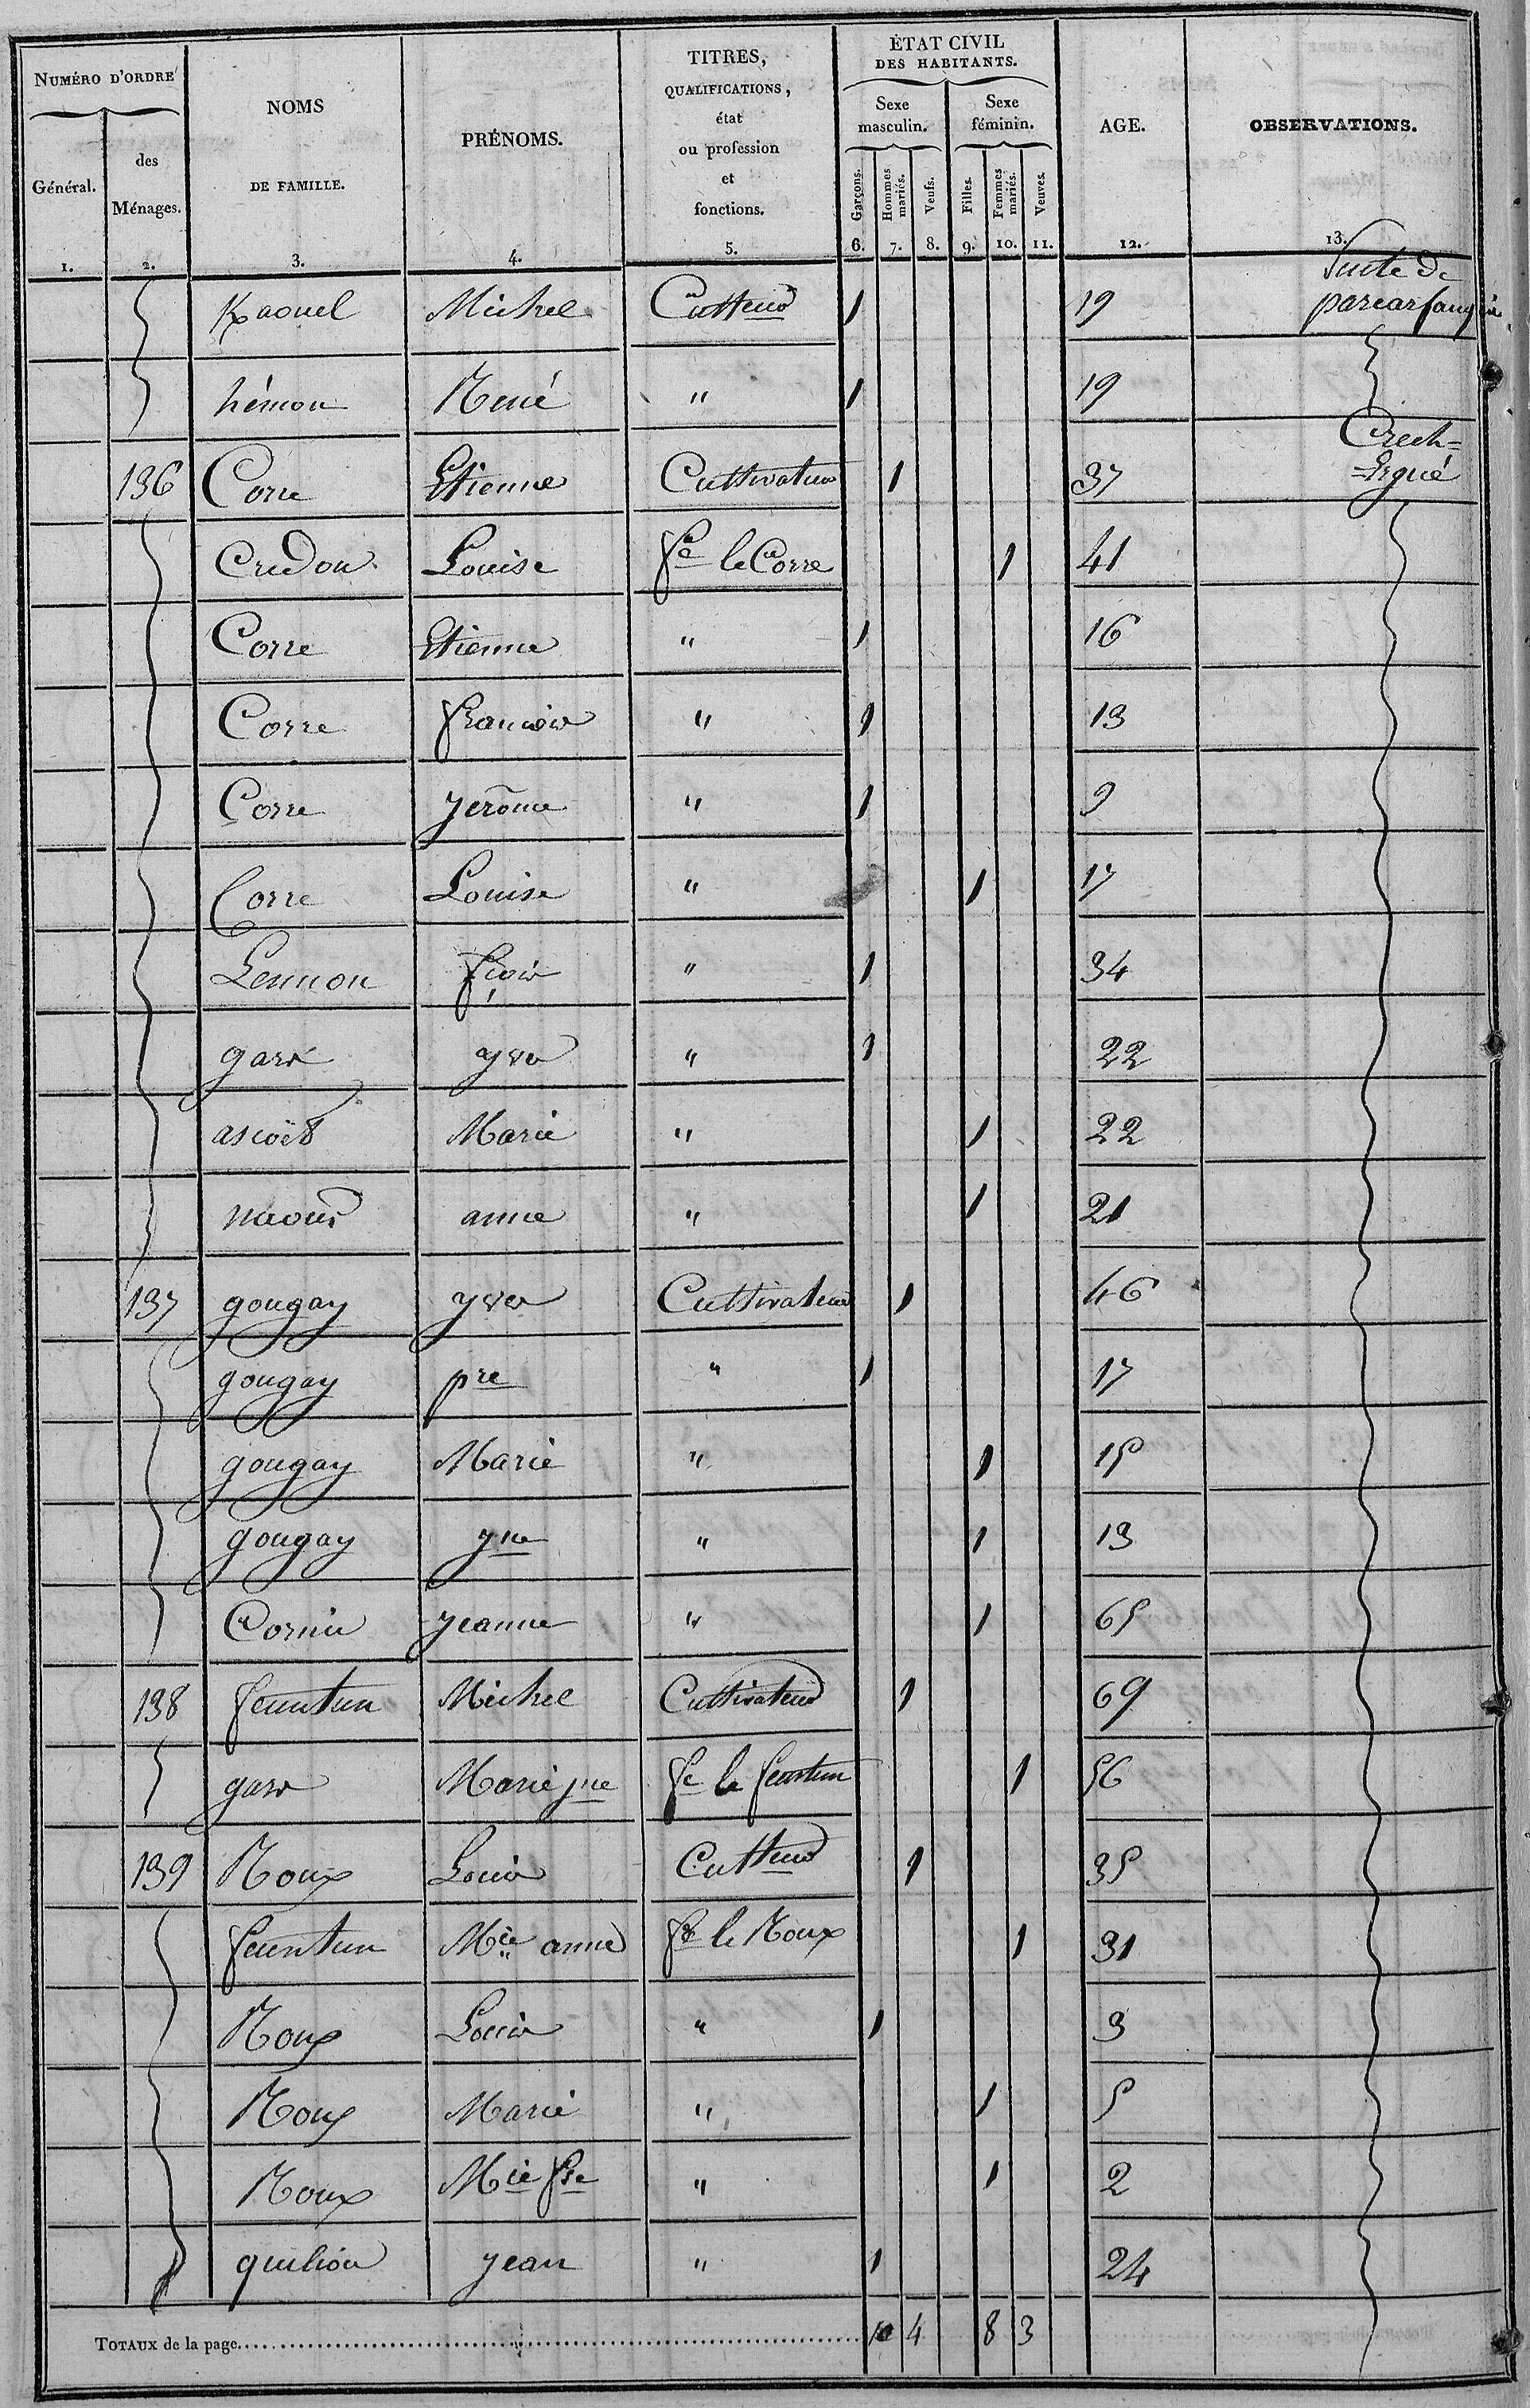 NUMÉRO D'ORDRE
Général.
des Ménages.
NOMS DE FAMILLE.
PRÉNOMS.
TITRES, QUALIFICATIONS, état ou profession et fonctions.
ÉTAT CIVIL DES HABITANTS.
Sexe masculin.
Sexe féminin.
Garçons.
Hommes mariés.
Veufs.
Filles.
Femmes mariés.
Veuves.
AGE.
OBSERVATIONS.
1. 2. 3. 4. 5. 6. 7. 8. 9. 10. 11. 12. 13.
Suite de
Kaouel Michel Cultteur 1 19
hémon René " 1 19
Crech=
136 Corre Etienne Cultivateur 1 37 =Ergué
Credou Louise fe le Corre 1 41
Corre Etienne " 1 16
Corre francois " 1 13
Corre Jerôme " 1 9
Corre Louise " 1 17
Lennon fçois " 1 34
garx yves " 1 22
ascoët Marie " 1 22
naour anne " 1 21
137 gougay yves Cultivateur 1 46
gougay pre " 1 17
gougay Marie " 1 15
gougay jne " 1 13
Cornic Jeanne " 1 65
138 feuntun Michel Cultivateur 1 69
garx Marie jne fe le feuntun 1 56
139 Roux Louis Cultteur 1 35
feuntun Mie anne fe le Roux 1 31
Roux Louis " 1 3
Roux Marie " 1 5
Roux Mie fse " 1 2
quiliou Jean " 1 24
TOTAUX de la page 10 4 8 3